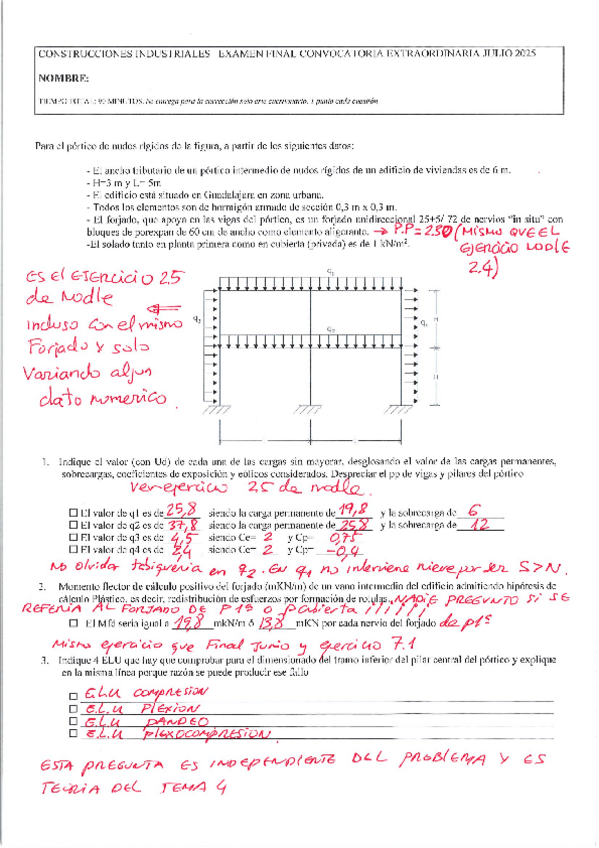 CONSTRUCCIONES INDUSTRIALES EXAMEN FINAL CONVOCATORIA EXTRAORDINARIA JULIO 2025
NOMBRE:
TIEMPO TOTAL: 90 MINUTOS. Se entrega para la corrección solo este cuestionario. 1 punto cada cuestión
Para el pórtico de nudos rígidos de la figura, a partir de los siguientes datos:
- El ancho tributario de un pórtico intermedio de nudos rígidos de un edificio de viviendas es de 6 m.
- H=3 m y L= 5m
- El edificio está situado en Guadalajara en zona urbana.
- Todos los elementos son de hormigón armado de sección 0,3 m x 0,3 m.
- El forjado, que apoya en las vigas del pórtico, es un forjado unidireccional 25+5/ 72 de nervios "in situ" con
bloques de porexpan de 60 cm de ancho como elemento aligerante. → P.P = 2.30 (MISMO QUE EL
EJERCICIO MODLE
2.4)
-El solado tanto en planta primera como en cubierta (privada) es de 1 kN/m².
ES EL EJERCICIO 2.5
de Modle
incluso con el mismo
Forjado y solo
Variando algun
dato numerico.
q1
q2
q3
q4
H
H
1. Indique el valor (con Ud) de cada una de las cargas sin mayorar, desglosando el valor de las cargas permanentes,
sobrecargas, coeficientes de exposición y eólicos considerados. Despreciar el pp de vigas y pilares del pórtico
Ver ejercicio 2.5 de modle.
El valor de q1 es de 25,8 siendo la carga permanente de 19,8 y la sobrecarga de 6
El valor de q2 es de 37,8 siendo la carga permanente de 25,8 y la sobrecarga de 12
El valor de q3 es de 4,5 siendo Ce= 2 y Cp= 0,75
El valor de q4 es de 2,4 siendo Ce= 2 y Cp= -0,4
No olvidar tabiqueria en q2. En q1 no interviene nieve por ser S>N.
2. Momento flector de cálculo positivo del forjado (mKN/m) de un vano intermedio del edificio admitiendo hipótesis de
cálculo Plástico, es decir, redistribución de esfuerzos por formación de rotulas. NADIE PREGUNTO SI SE
REFERIA AL FORJADO DE P1ª O Cubierta
El Mfd sería igual a 19,8 mKN/m ó 13,8 mKN por cada nervio del forjado de p1ª
Mismo ejercicio que Final Junio y ejercicio 7.1
3. Indique 4 ELU que hay que comprobar para el dimensionado del tramo inferior del pilar central del pórtico y explique
en la misma línea porque razón se puede producir ese fallo
E.L.U COMPRESION
E.L.U FLEXION
E.L.U PANDEO
E.L.U FLEXOCOMPRESION
ESTA PREGUNTA ES INDEPENDIENTE DEL PROBLEMA Y ES
TEORIA DEL TEMA 4